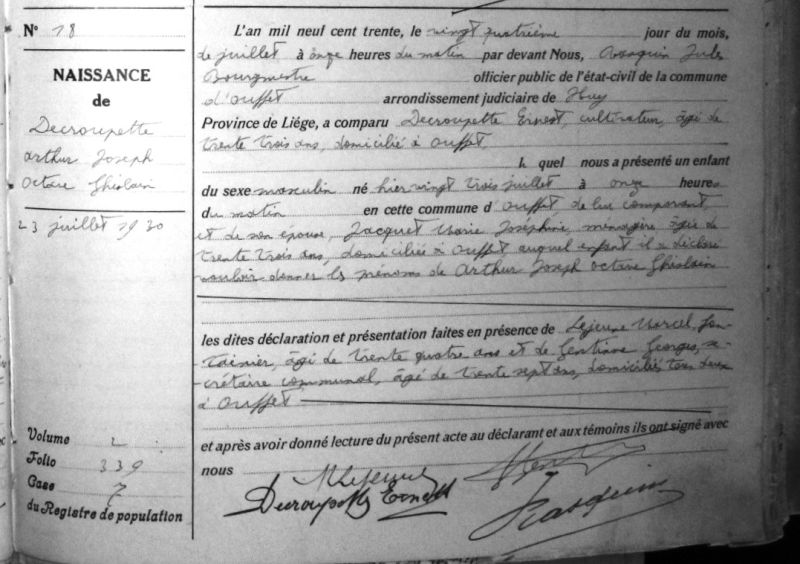 N° 18
NAISSANCE
de
Decroupette
Arthur Joseph
Octave Ghislain
23 juillet 1930
Volume 2
Folio 339
Case 7
du Registre de population
L'an mil neuf cent trente, le vingt quatrième jour du mois,
de juillet à onze heures du matin par devant Nous, Rasquin Jules
Bourgmestre officier public de l'état-civil de la commune
d'Ouffet arrondissement judiciaire de Huy
Province de Liége, a comparu Decroupette Ernest, cultivateur, âgé de
trente trois ans, domicilié à Ouffet
l quel nous a présenté un enfant
du sexe masculin né hier vingt trois juillet à onze heures
du matin en cette commune d'Ouffet de lui comparant
et de son épouse, Jacquet Marie Joséphine, ménagère, âgée de
trente trois ans, domiciliée à Ouffet auquel enfant il a déclaré
vouloir donner les prénoms de Arthur Joseph Octave Ghislain
les dites déclaration et présentation faites en présence de Lejeune Marcel, fon-
tainier, âgé de trente quatre ans et de Gentiane Georges, se-
crétaire communal, âgé de trente sept ans, domiciliés tous deux
à Ouffet
et après avoir donné lecture du présent acte au déclarant et aux témoins ils ont signé avec
nous
M Lejeune
Decroupette Ernest
Rasquin